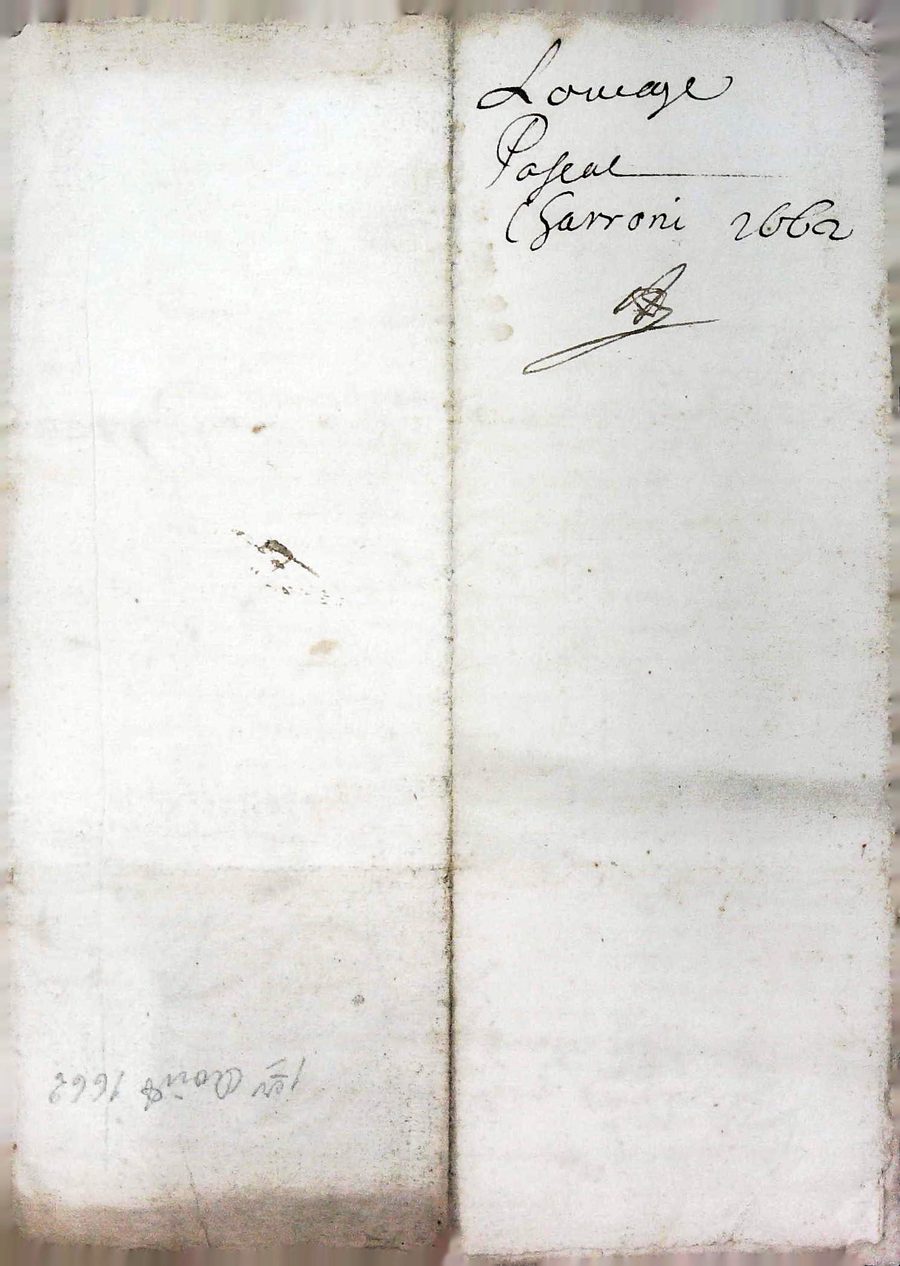 Louage
Pascal
Charroni 1662
1er Août 1662